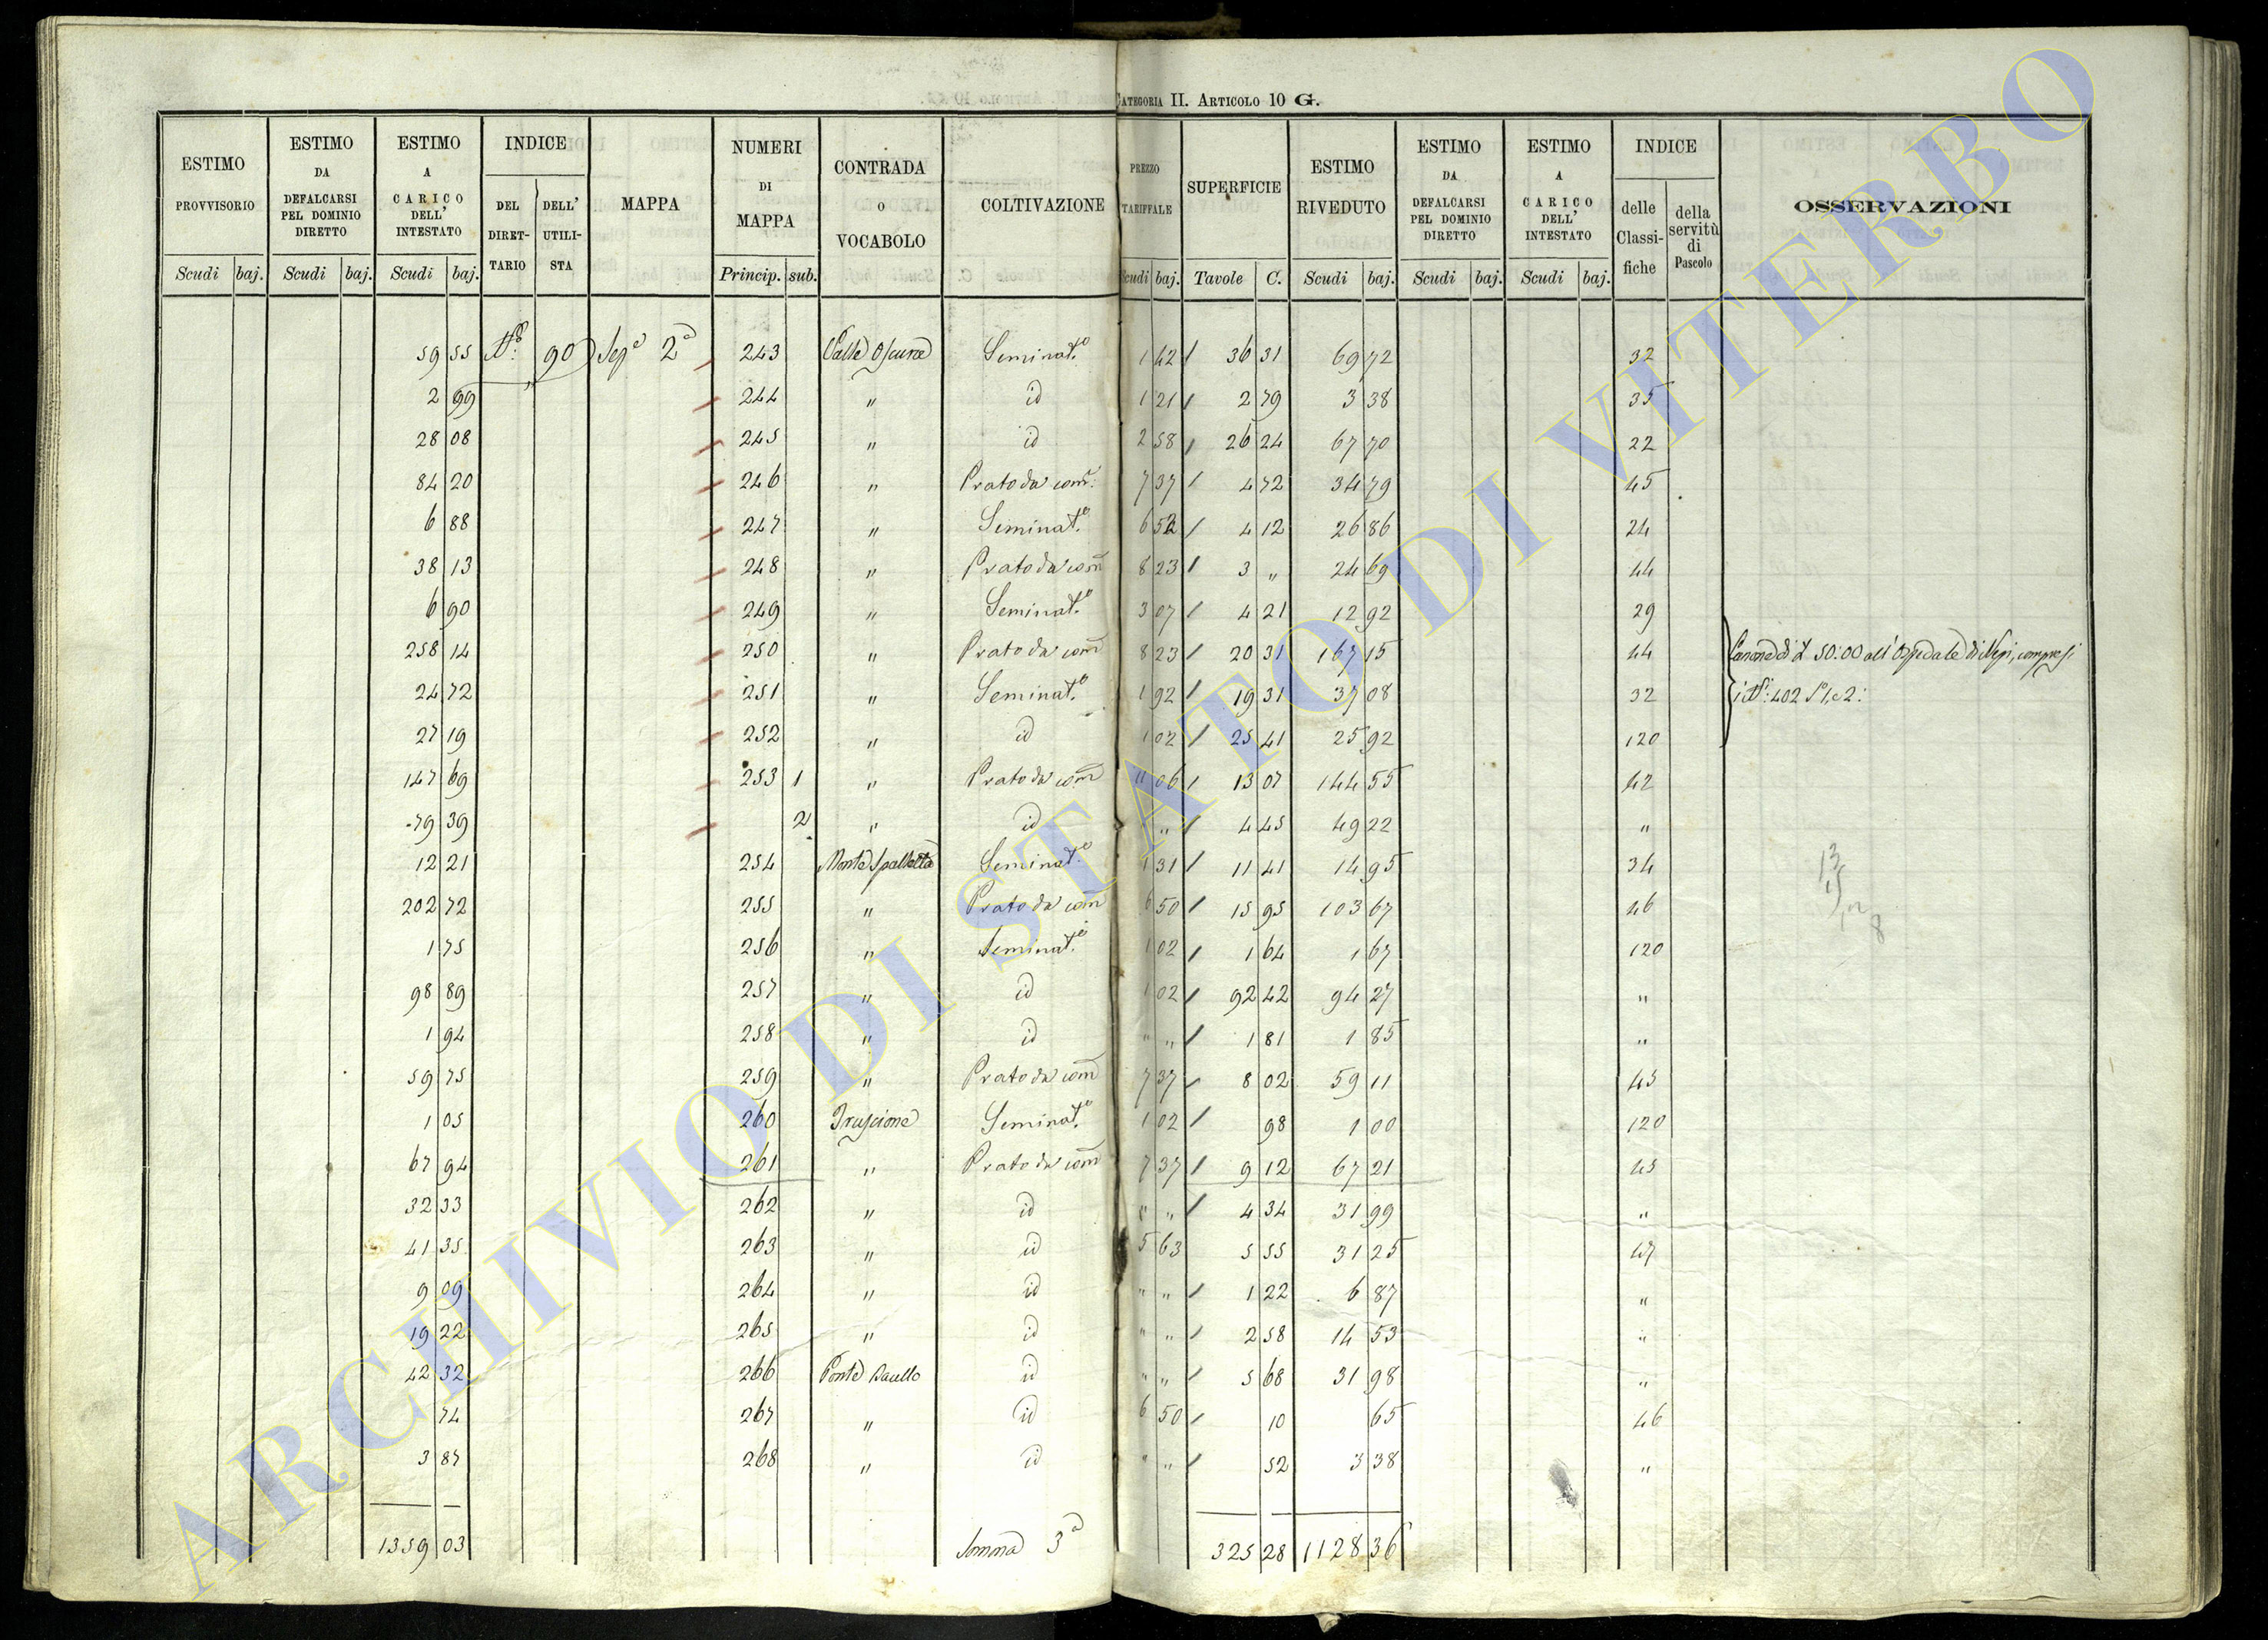 Categoria II. Articolo 10 G.
ESTIMO PROVVISORIO Scudi baj. | ESTIMO DA DEFALCARSI PEL DOMINIO DIRETTO Scudi baj. | ESTIMO A CARICO DELL' INTESTATO Scudi baj. | INDICE DEL DIRETTARIO DELL' UTILISTA | MAPPA | NUMERI DI MAPPA Princip. sub. | CONTRADA O VOCABOLO | COLTIVAZIONE | PREZZO TARIFFALE Scudi baj. | SUPERFICIE Tavole C. | ESTIMO RIVEDUTO Scudi baj. | ESTIMO DA DEFALCARSI PEL DOMINIO DIRETTO Scudi baj. | ESTIMO A CARICO DELL' INTESTATO Scudi baj. | INDICE delle Classifiche della servitù di Pascolo | OSSERVAZIONI
59 55 N.º 90 Sez.e 2.a 243 Valle Oscura Seminat.o 1 42 / 36 31 69 72 32
2 99 244 " id 1 21 / 2 79 3 38 35
28 08 245 " id 2 58 / 26 24 67 70 22
84 20 246 " Prato da com: 7 37 / 4 72 34 79 45
6 88 247 " Seminat.o 6 52 / 4 12 26 86 24
38 13 248 " Prato da com 8 23 / 3 " 24 69 44
6 90 249 " Seminat.o 3 07 / 4 21 12 92 29
258 14 250 " Prato da com 8 23 / 20 31 167 15 44 Canone di £ 50:00 all' Ospedale di Nepi, compresi
24 72 251 " Seminat.o 1 92 / 19 31 37 08 32 i N.i: 402 S 1, e 2:
27 19 252 " id 1 02 / 25 41 25 92 120
147 69 253 1 " Prato da com 11 06 / 13 07 144 55 42
79 39 2 " id " " / 4 45 49 22 "
12 21 254 Monte Seminat.o 1 31 / 11 41 14 95 34
202 72 255 " Prato da com 6 50 / 15 95 103 67 46
1 75 256 " Seminat.o 1 02 / 1 64 1 67 120
98 89 257 " id 1 02 / 92 42 94 27 "
1 94 258 " id " " / 1 81 1 85 "
59 75 259 " Prato da com 7 37 / 8 02 59 11 45
1 05 260 Seminat.o 1 02 / 98 1 00 120
67 94 261 " Prato da com 7 37 / 9 12 67 21 45
32 33 262 " id " " / 4 34 31 99 "
41 35 263 " id 5 63 5 55 31 25 47
9 09 264 " id " " / 1 22 6 87 "
19 22 265 " id " " / 2 58 14 53 "
42 32 266 Ponte id " " / 5 68 31 98 "
74 267 " id 6 50 / 10 65 46
3 87 268 " id " " / 52 3 38 "
1359 03 Somma 3.a 325 28 1128 36
ARCHIVIO DI STATO DI VITERBO